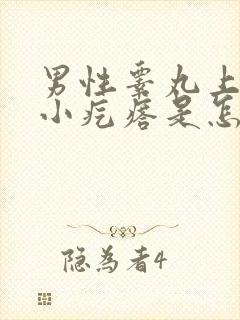 男性睾丸上
小疙瘩是怎
隐为者4